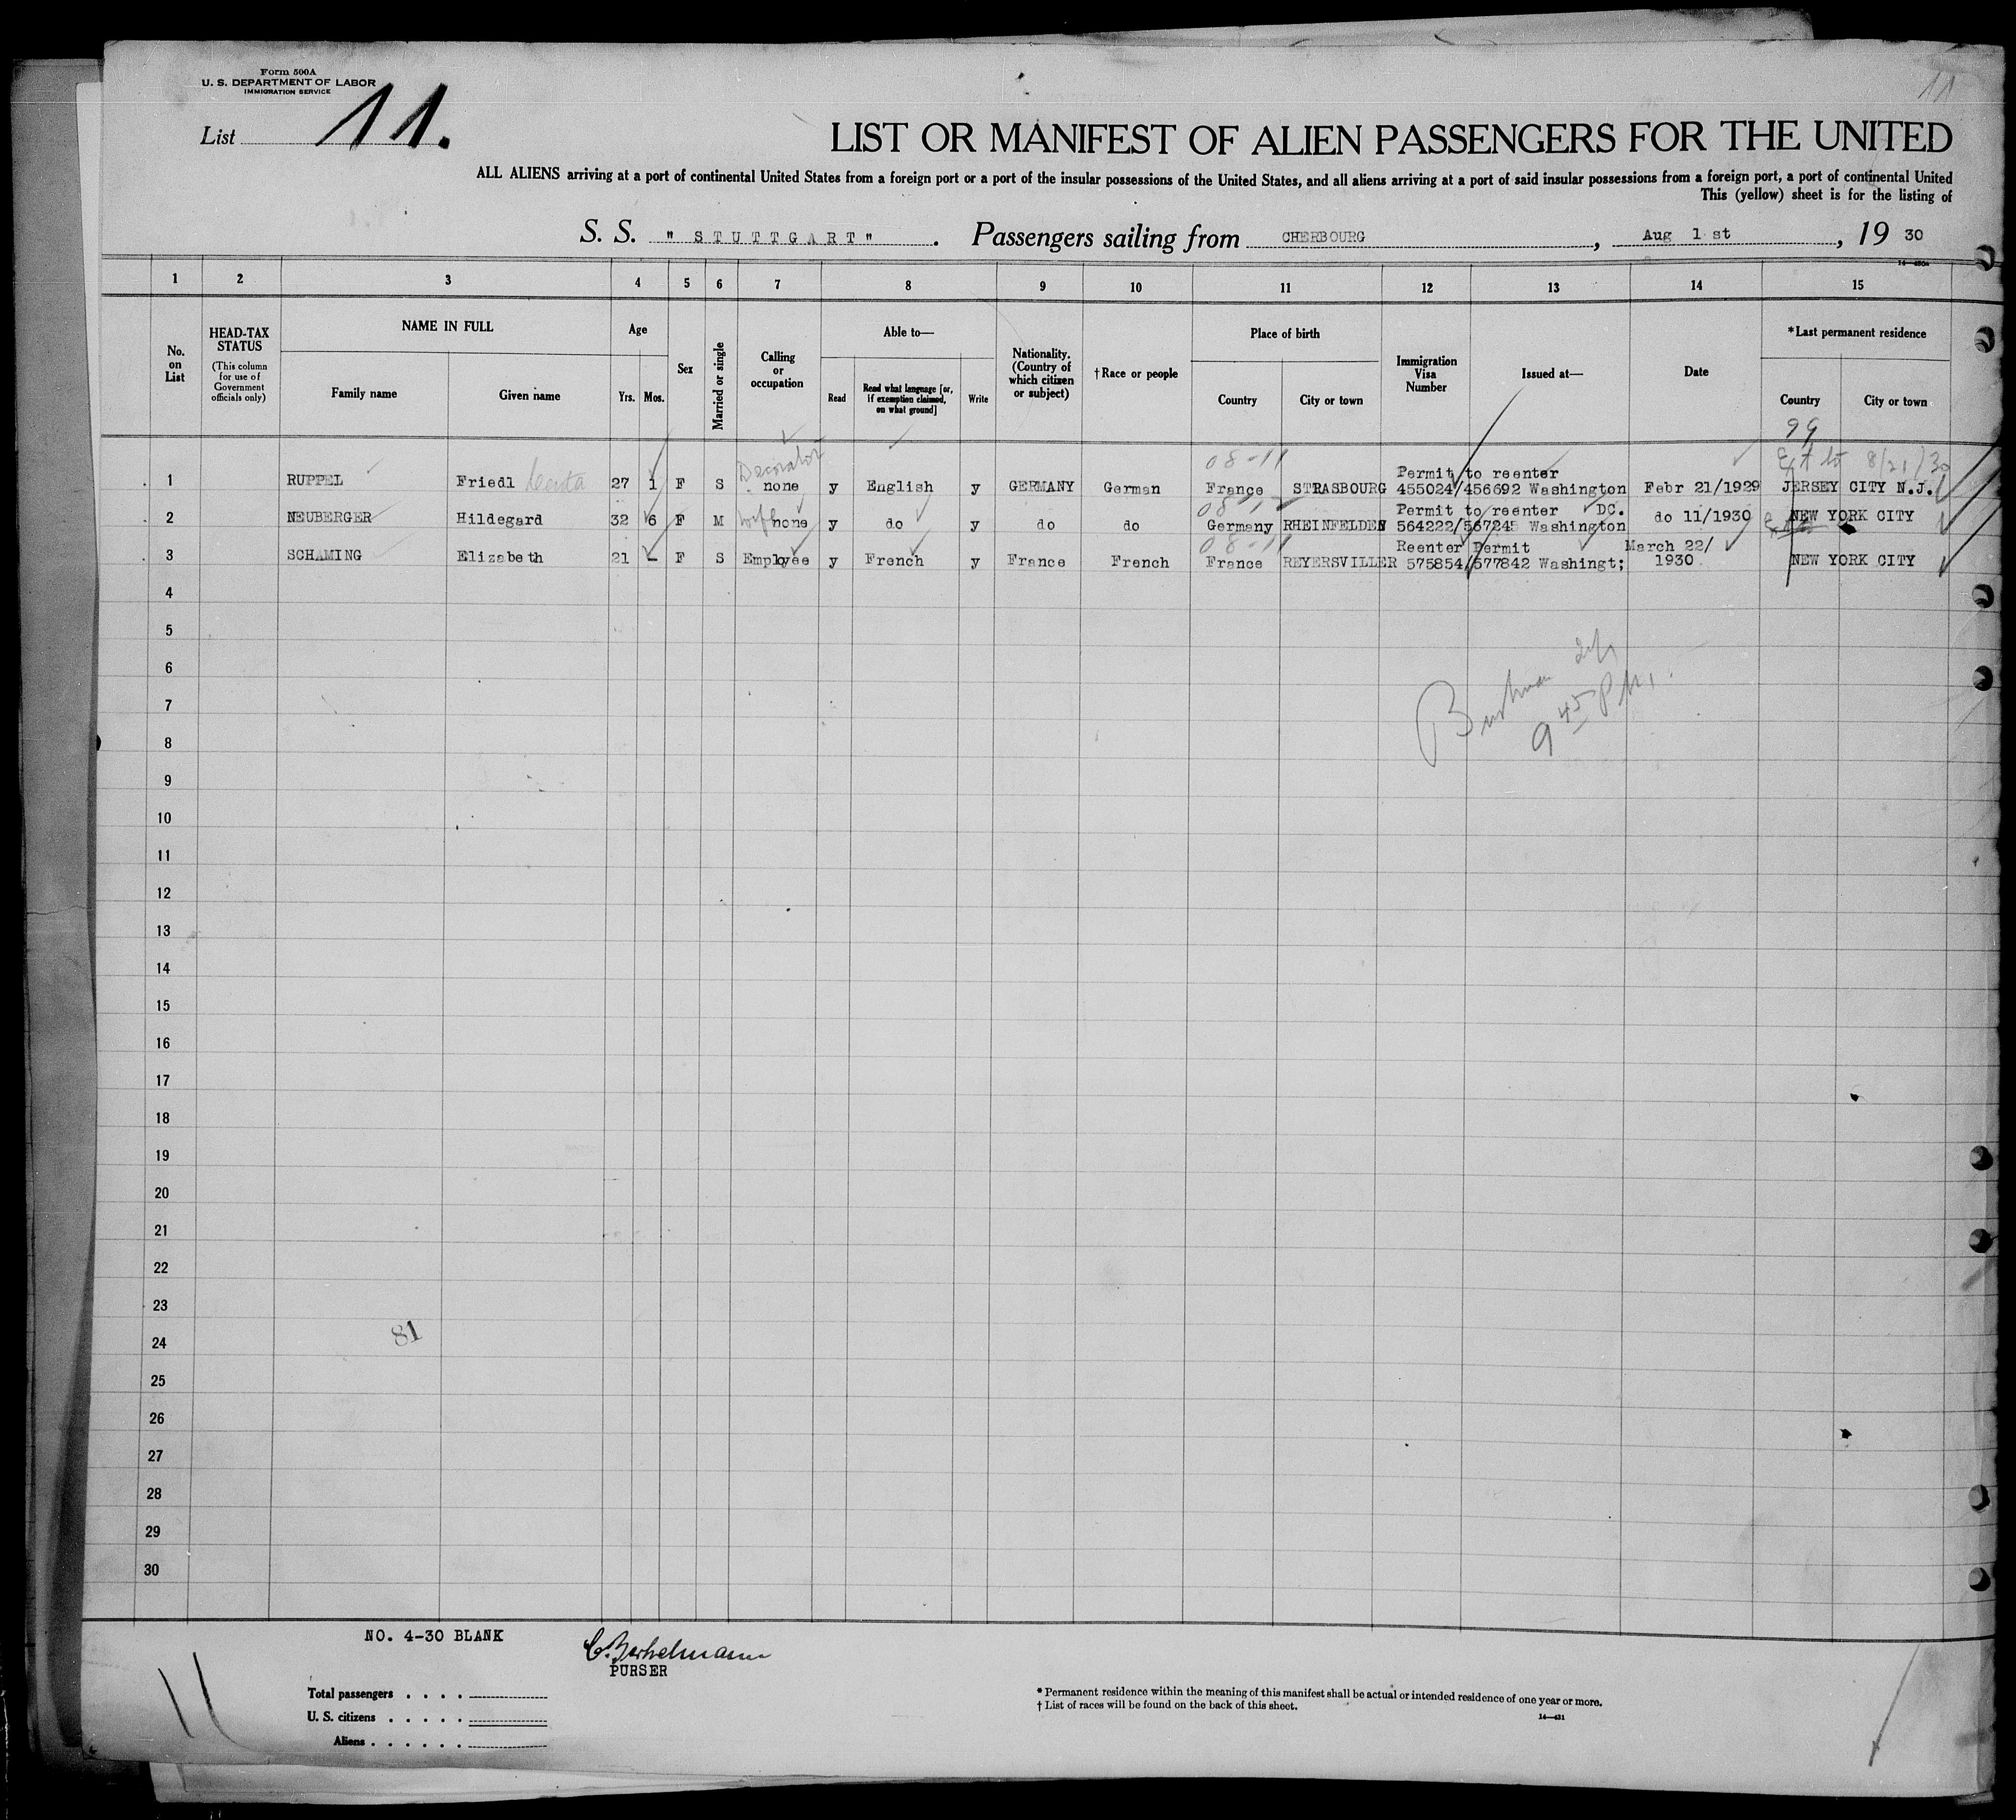 Form 500A
U. S. DEPARTMENT OF LABOR
IMMIGRATION SERVICE
11
List 11.
LIST OR MANIFEST OF ALIEN PASSENGERS FOR THE UNITED
ALL ALIENS arriving at a port of continental United States from a foreign port or a port of the insular possessions of the United States, and all aliens arriving at a port of said insular possessions from a foreign port, a port of continental United
This (yellow) sheet is for the listing of
S. S. " STUTTGART" . Passengers sailing from CHERBOURG , Aug 1 st , 19 30
1 2 3 4 5 6 7 8 9 10 11 12 13 14 15
No. on List
HEAD-TAX STATUS
(This column for use of Government officials only)
NAME IN FULL
Family name Given name
Age
Yrs. Mos.
Sex
Married or single
Calling or occupation
Able to—
Read
Read what language [or, if exemption claimed, on what ground]
Write
Nationality. (Country of which citizen or subject)
†Race or people
Place of birth
Country City or town
Immigration Visa Number
Issued at—
Date
*Last permanent residence
Country City or town
99
Decorator 08-11 Permit to reenter 8/21/30
1 RUPPEL Friedl 27 1 F S none y English y GERMANY German France STRASBOURG 455024/456692 Washington Febr 21/1929 JERSEY CITY N.J.
Permit to reenter DC.
2 NEUBERGER Hildegard 32 6 F M wife none y do y do do Germany RHEINFELDEN 564222/567245 Washington do 11/1930 NEW YORK CITY
08-11 Reenter Permit March 22/
3 SCHAMING Elizabeth 21 - F S Employee y French y France French France REYERSVILLER 575854/577842 Washingt; 1930 NEW YORK CITY
4
5
6
7
9 45 PM.
8
9
10
11
12
13
14
15
16
17
18
19
20
21
22
23
81
24
25
26
27
28
29
30
NO. 4-30 BLANK
PURSER
Total passengers . . . .
U. S. citizens . . . . .
Aliens . . . . . .
* Permanent residence within the meaning of this manifest shall be actual or intended residence of one year or more.
† List of races will be found on the back of this sheet.
14—431